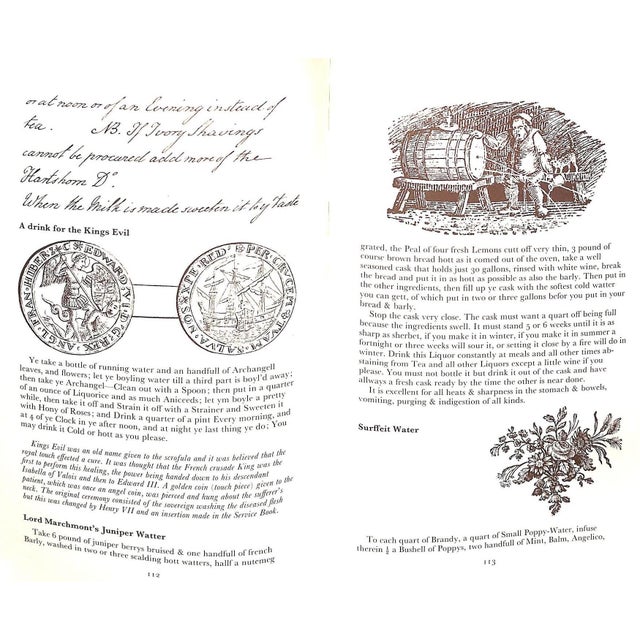 or at noon or of an Evening instead of
tea. NB. If Ivory Shavings
cannot be procured add more of the
Hartshorn Do.
When the Milk is made sweeten it to y taste
A drink for the Kings Evil
Ye take a bottle of running water and an handfull of Archangell
leaves, and flowers; let ye boyling water till a third part is boyl'd away;
then take ye Archangel—Clean out with a Spoon; then put in a quarter
of an ounce of Liquorice and as much Aniceeds; let ym boyle a pretty
while, then take it off and Strain it off with a Strainer and Sweeten it
with Hony of Roses; and Drink a quarter of a pint Every morning, and
at 4 of ye Clock in ye after noon, and at night ye last thing ye do; You
may drink it Cold or hott as you please.
Kings Evil was an old name given to the scrofula and it was believed that the
royal touch effected a cure. It was thought that the French crusade King was the
first to perform this healing, the power being handed down to his descendant
Isabella of Valois and then to Edward III. A golden coin (touch piece) given to the
patient, which was once an angel coin, was pierced and hung about the sufferer's
neck. The original ceremony consisted of the sovereign washing the diseased flesh
but this was changed by Henry VII and an insertion made in the Service Book.
Lord Marchmont's Juniper Watter
Take 6 pound of juniper berrys bruised & one handfull of french
Barly, washed in two or three scalding hott watters, halff a nutemeg
112
grated, the Peal of four fresh Lemons cutt off very thin, 3 pound of
course brown bread hott as it comed out of the oven, take a well
seasoned cask that holds just 30 gallons, rinsed with white wine, break
the bread and put it in as hot as also possible to the cask. Then put in
the other ingredients, then fill up ye cask with the softest cold watter
you can gett, of which put in two or three gallons befor you put in your
bread & barly.
Stop the cask very close. The cask must want a quart off being full
because the ingredients swell. It must stand 5 or 6 weeks until it is as
sharp as sherbet, if you make it in winter, if you make it in summer a
fortnight or three weeks will sour it, or setting it close by a fire will do in
winter. Drink this Liquor constantly at meals and all other times ab-
staining from Tea and all other Liquors except a little wine if you
please. You must not bottle it but drink it out of the cask and have
allways a fresh cask ready by the time the other is near done.
It is excellent for all heats & sharpness in the stomach & bowels,
vomiting, purging & indigestion of all kinds.
Surffeit Water
To each quart of Brandy, a quart of Small Poppy-Water, infuse
therein ½ a Bushell of Poppys, two handfull of Mint, Balm, Angelico,
113